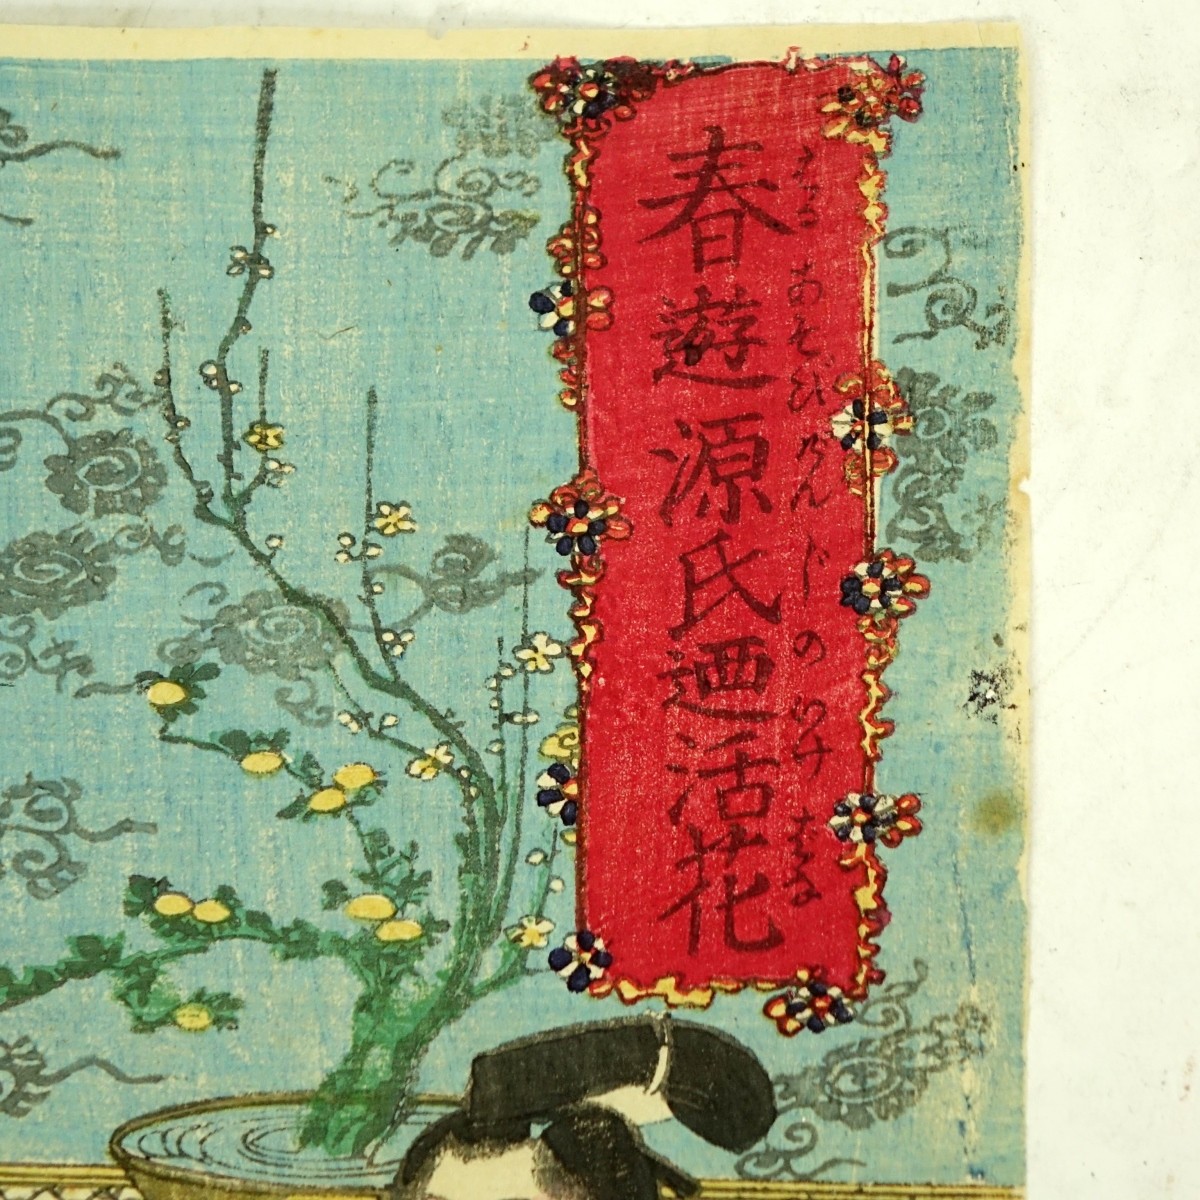 春遊源氏迺活花
はる あそび げんじ の いけ はな